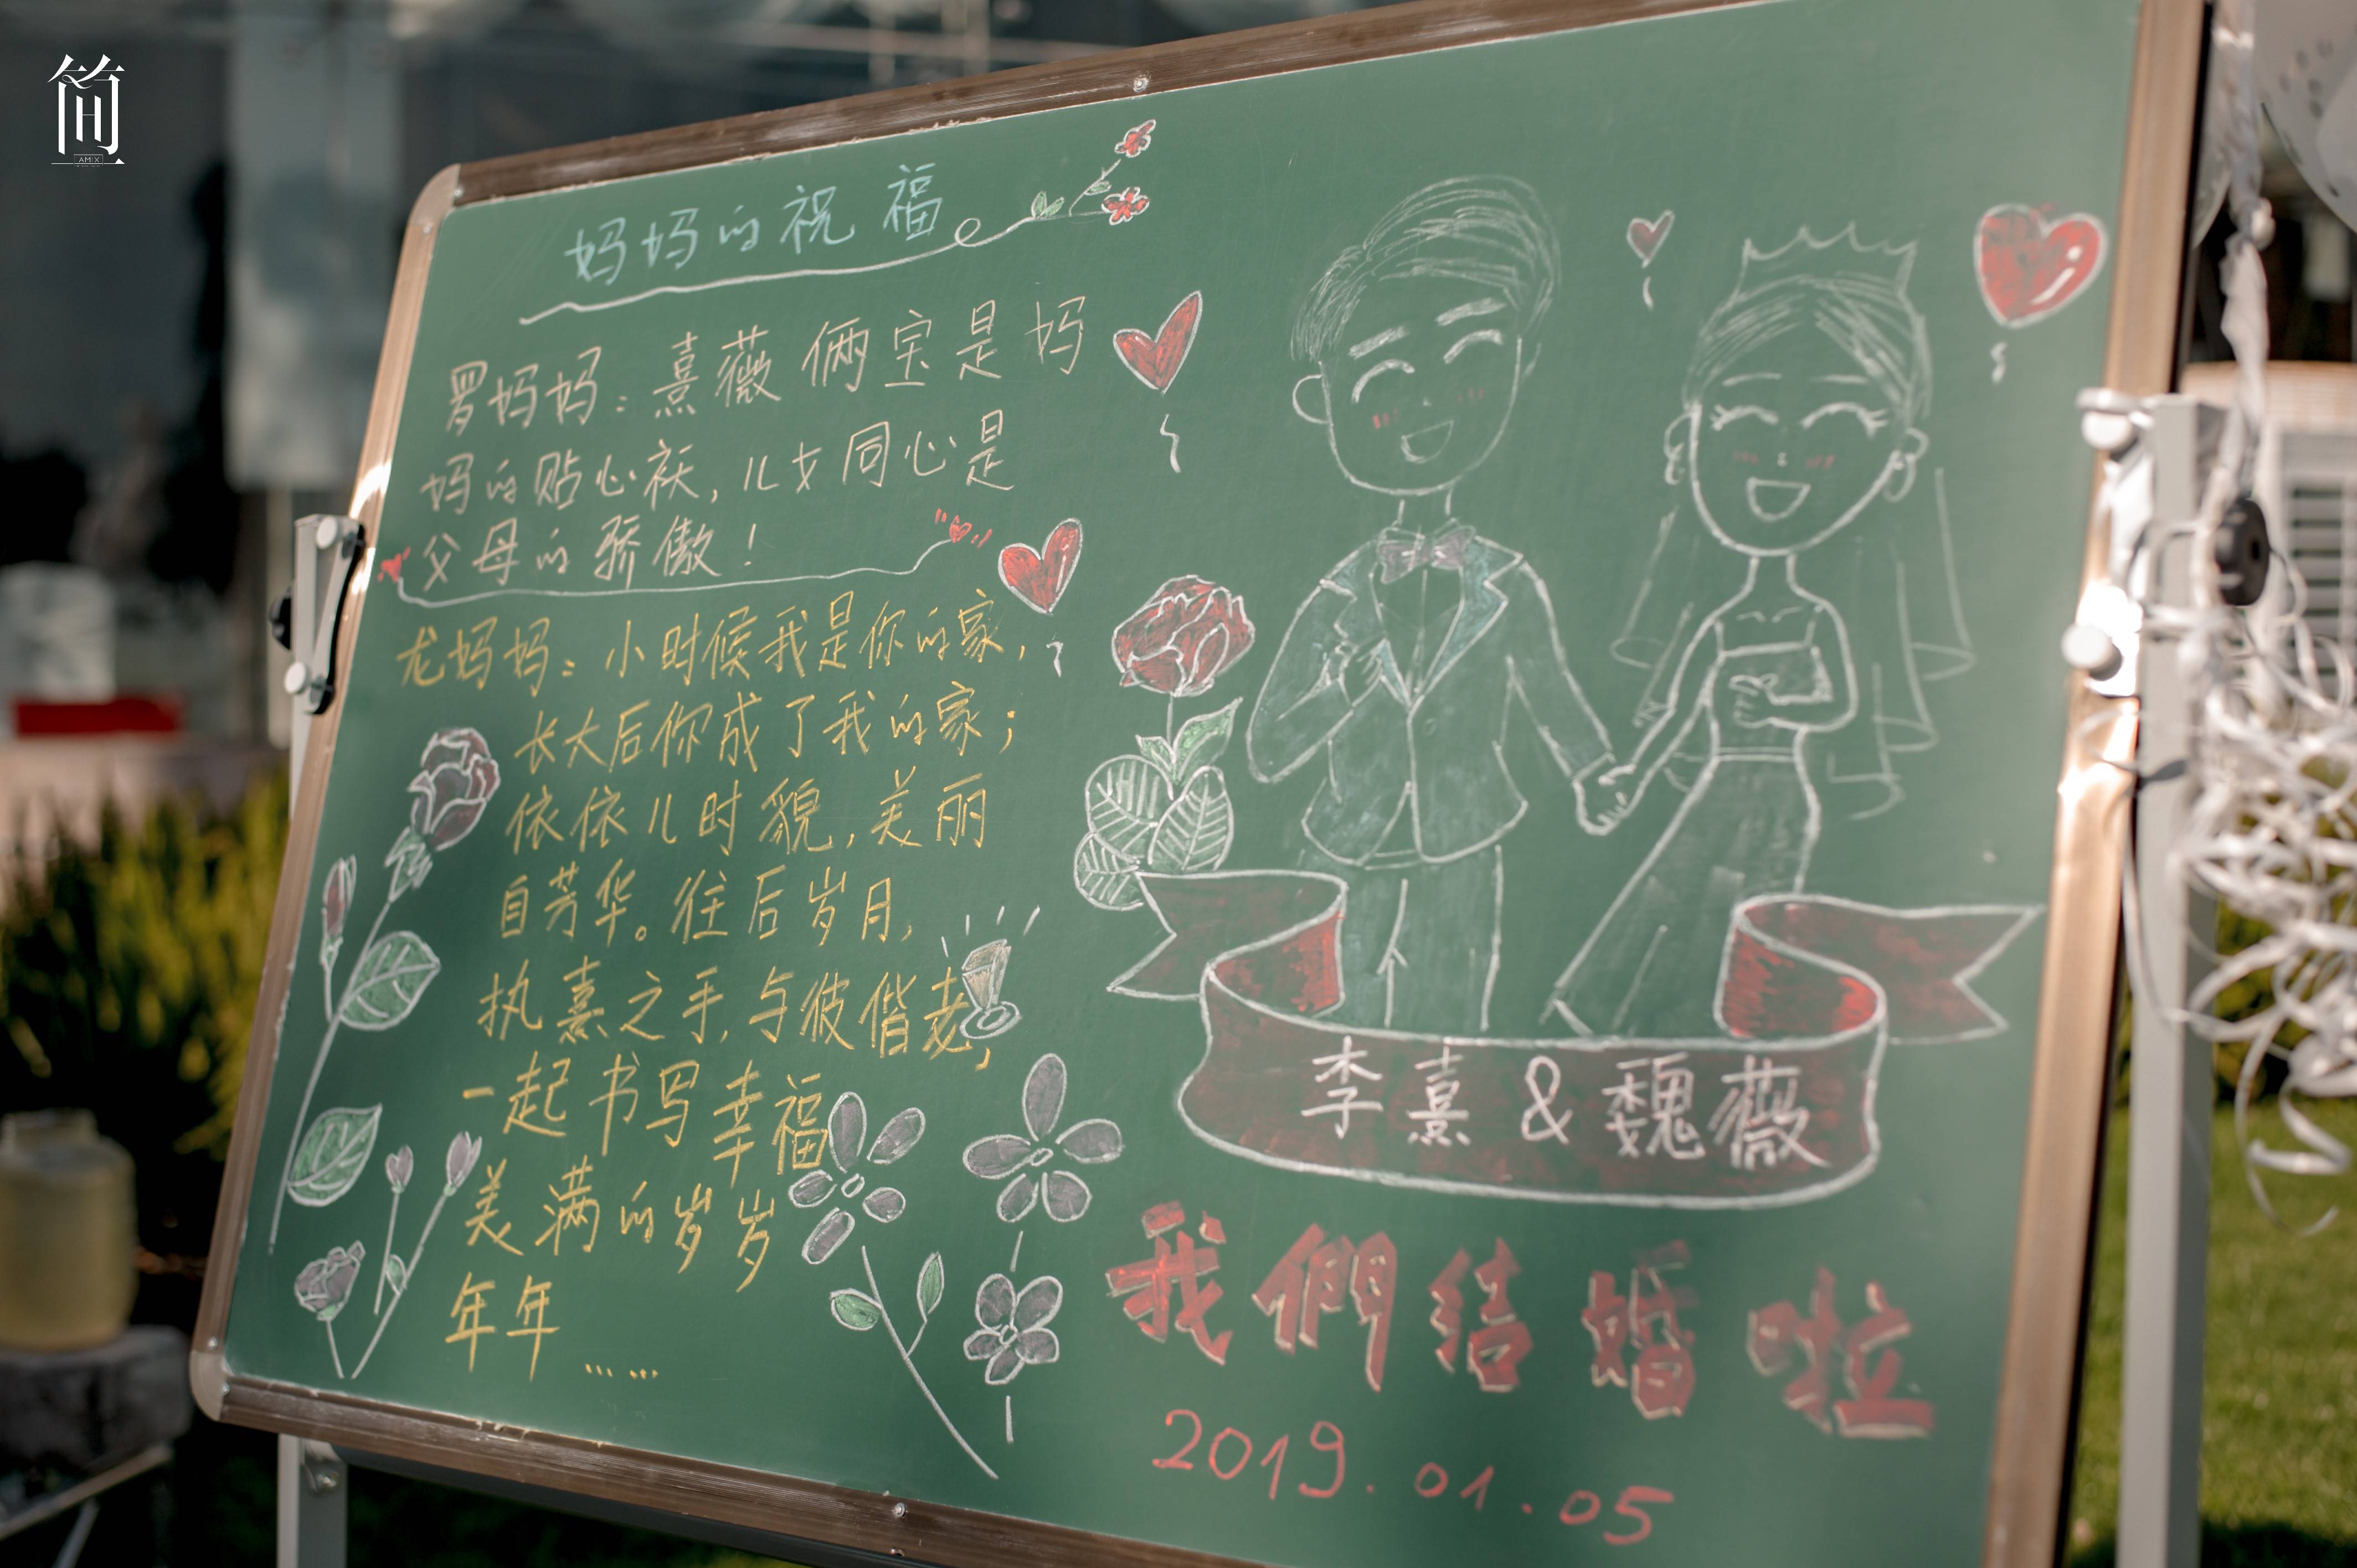 简
AMIX
妈妈的祝福
罗妈妈：熹薇俩宝是妈
妈的贴心袄，儿女同心是
父母的骄傲！
龙妈妈：小时候我是你的家，
长大后你成了我的家；
依依儿时貌，美丽
自芳华。往后岁月，
执熹之手，与彼偕老，
一起书写幸福
美满的岁岁
年年……
李熹&魏薇
我們结婚啦
2019.01.05